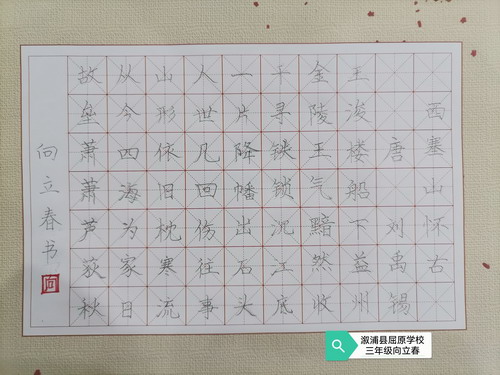 西塞山怀古
唐 刘禹锡
王浚楼船下益州
金陵王气黯然收
千寻铁锁沉江底
一片降幡出石头
人世几回伤往事
山形依旧枕寒流
从今四海为家日
故垒萧萧芦荻秋
向立春书
向
溆浦县屈原学校
三年级向立春